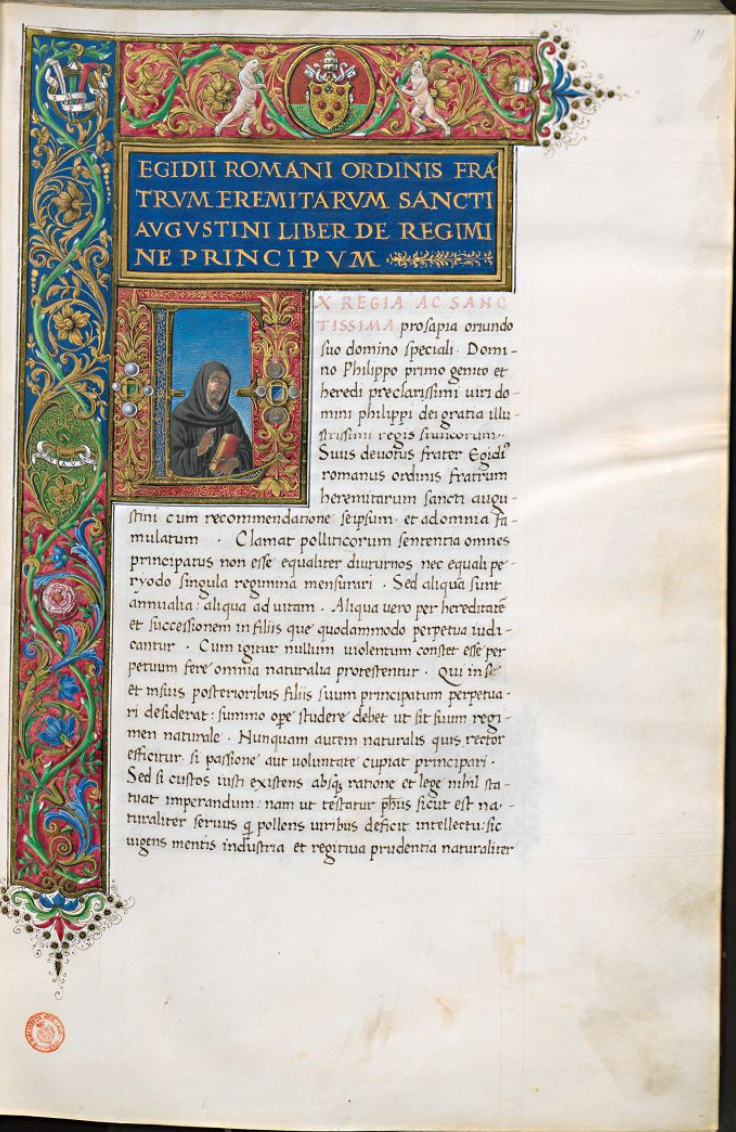 EGIDII ROMANI ORDINIS FRA
TRVM EREMITARVM SANCTI
AVGVSTINI LIBER DE REGIMI
NE PRINCIPVM
X REGIA AC SANC
TISSIMA prosapia oriundo
suo domino speciali. Domi-
no Philippo primo genito et
heredi preclarissimi uiri do-
mini philippi dei gratia illu-
strissimi regis francorum.
Suus deuotus frater Egidiꝰ
romanus ordinis fratrum
heremitarum sancti augu-
stini cum recommendatione seipsum et ad omnia fa-
mulatum. Clamat polliticorum sententia omnes
principatus non esse equaliter diuturnos nec equali pe-
ryodo singula regimina mensurari. Sed aliqua sunt
annualia: aliqua ad uitam. Aliqua uero per hereditatē
et successionem in filiis que quodammodo perpetua iudi-
cantur. Cum igitur nullum uiolentum constet esse per
petuum fere omnia naturalia protestentur. Qui in se
et in suis posterioribus filiis suum principatum perpetua-
ri desiderat: summo ope studere debet ut sit suum regi-
men naturale. Nunquam autem naturalis quis rector
efficitur si passione aut uoluntate cupiat principari.
Sed si custos iusti existens absqꝫ ratione et lege nihil sta-
tuat imperandum: nam ut testatur ph̄us sicut est na-
turaliter seruus q̄ pollens uiribus deficit intellectu: sic
uigens mentis industria et regitiua prudentia naturaliter